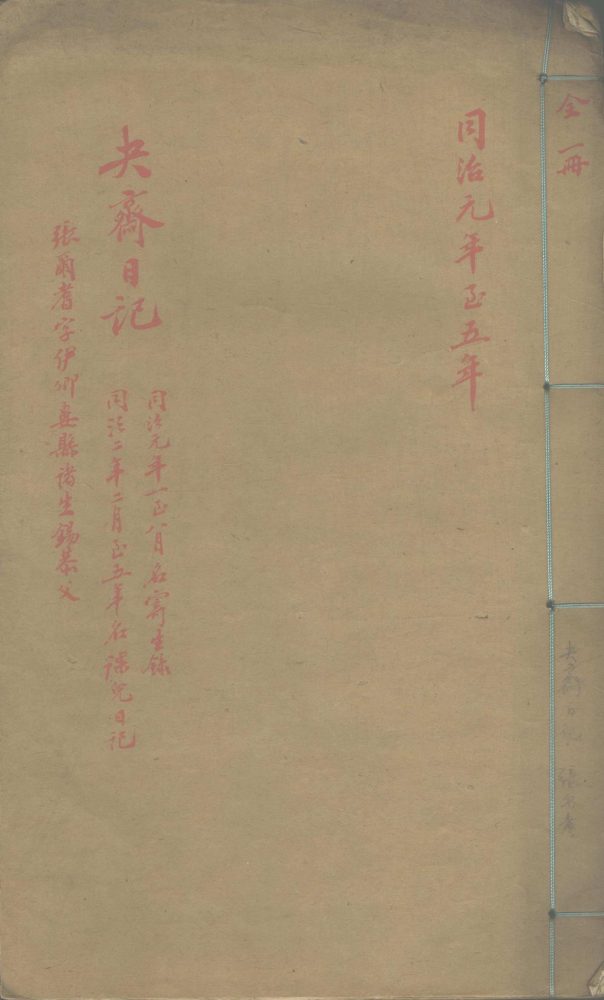 全一冊
同治元年至五年
夬齋日記
同治元年一至八月名寄生錄
同治二年二月至五年名課兒日記
張爾耆字伊卿婁縣諸生錫恭父
夬齋日記 張爾耆